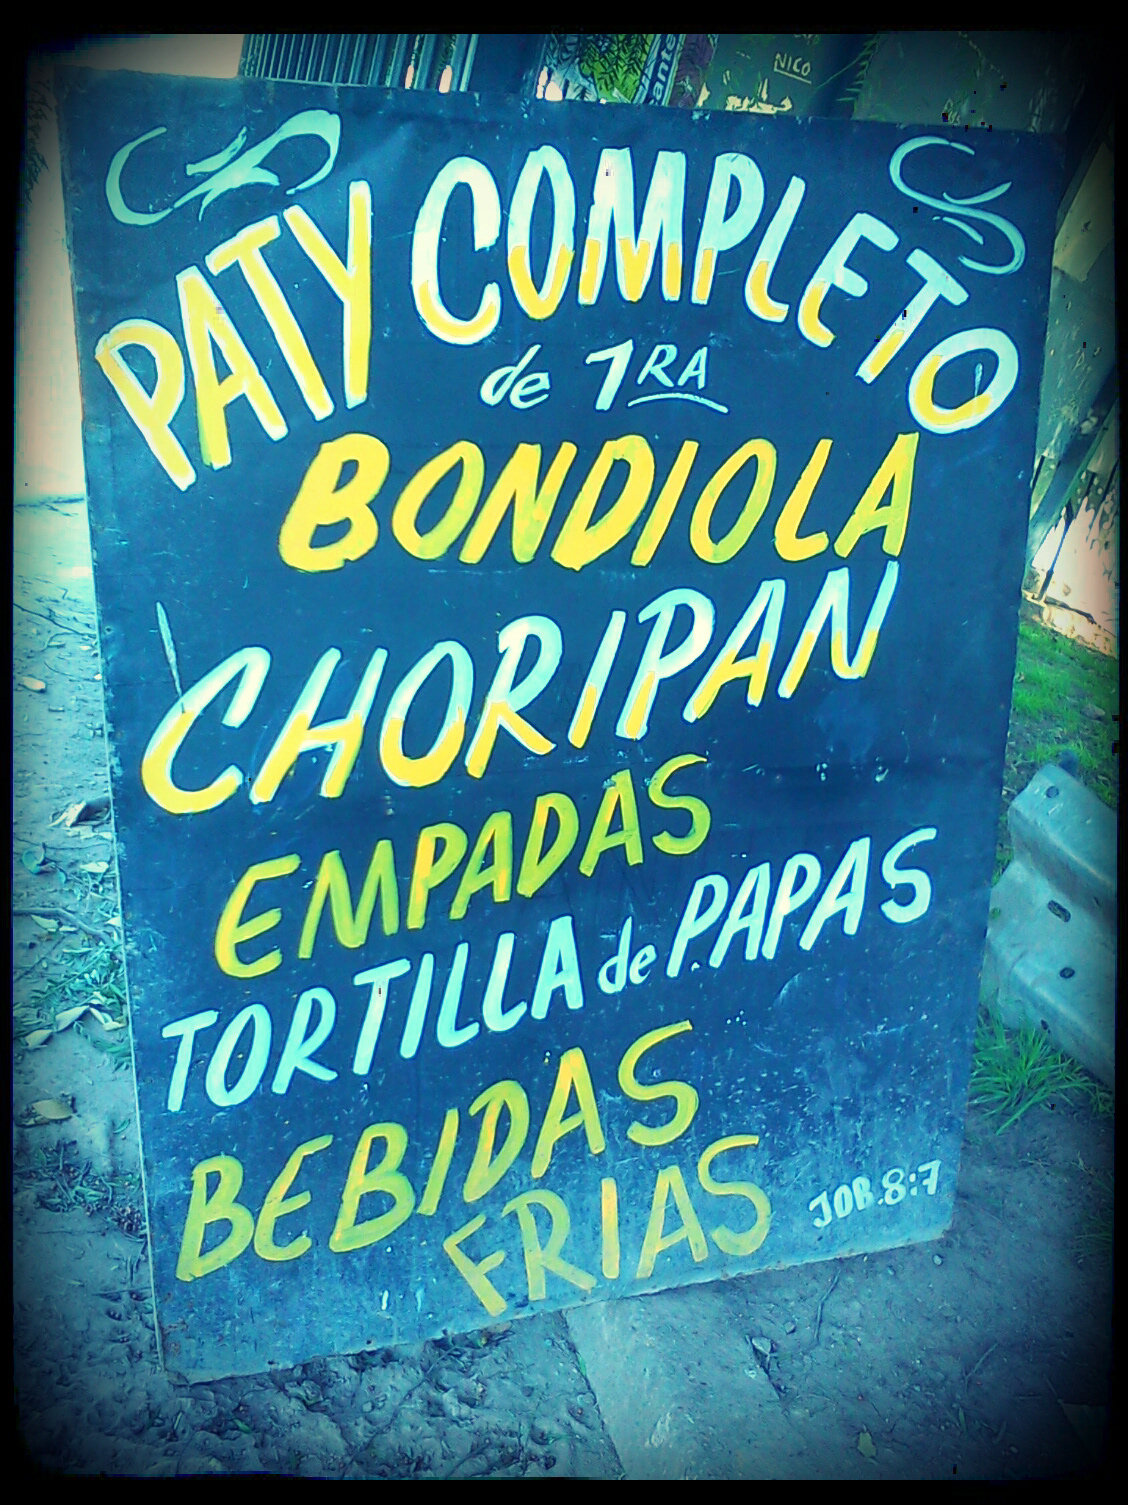 NICO
PATY COMPLETO
de 1RA
BONDIOLA
CHORIPAN
EMPADAS
TORTILLA de PAPAS
BEBIDAS
FRIAS
JOB.8:7